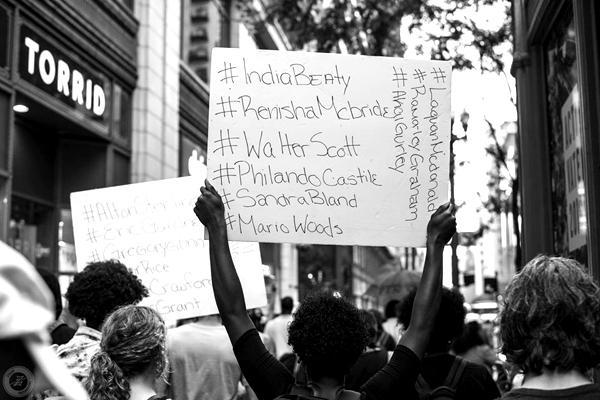 TORRID
#IndiaBeaty
#RenishaMcbride
#Walter Scott
#PhilandoCastile
#SandraBland
#Mario Woods
#LaquanMcdonald
#RamarleyGraham
#AkaiGurley
#Alton
#Eric
#Gregory
Rice
Crawford
Grant